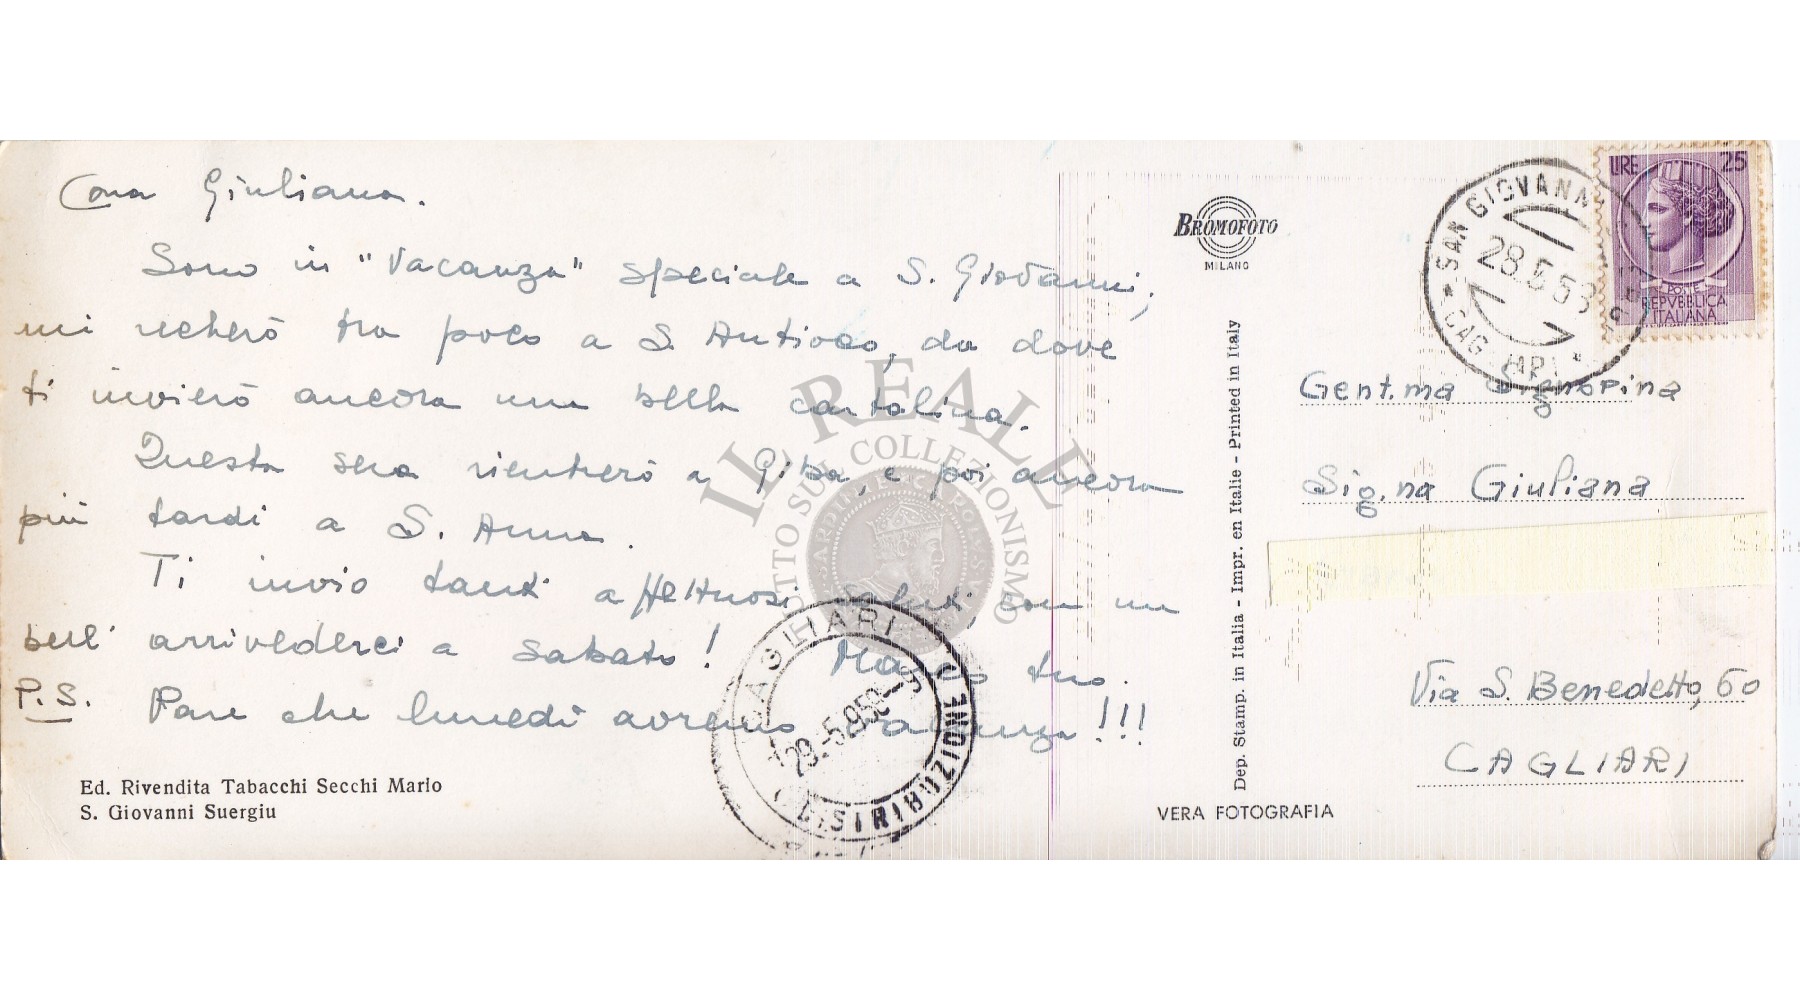 Cara Giuliana.
Sono in "Vacanza" speciale a S. Giovanni,
mi recherò tra poco a S. Antioco, da dove
ti invierò ancora una bella cartolina.
Questa sera rientrerò a Giba, e poi ancora
più tardi a S. Anna.
Ti invio tanti affettuosi saluti, con un
bell' arrivederci a sabato! tuo.
P.S. Pare che lunedì avremo vacanza!!!
Ed. Rivendita Tabacchi Secchi Mario
S. Giovanni Suergiu
CAGLIARI
29.-5.1958
DISTRIBUZIONE
IL REALE
TUTTO SUL COLLEZIONISMO
Dep. Stamp. in Italia - Impr. en Italie - Printed in Italy
BROMOFOTO
MILANO
VERA FOTOGRAFIA
SAN GIOVANNI
28.5.58
CAGLIARI
LIRE 25
POSTE
REPVBBLICA
ITALIANA
Gent.ma Signorina
Sig.na Giuliana
Via S. Benedetto, 60
CAGLIARI